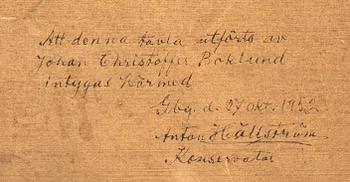 Att denna tavla utförts av
Johan Christoffer Boklund
intygas härmed
Gbg. d. 27 okt. 1952
Anton Hällström
Konservator